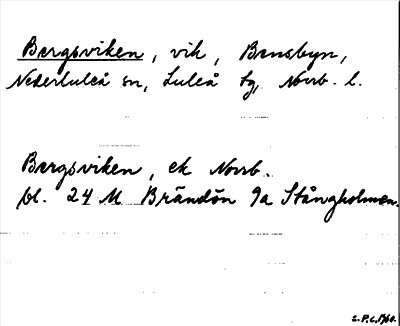 Bergsviken, vik, Bensbyn,
Nederluleå sn, Luleå tg, Norrb. l.
Bergsviken, ek Norrb.
bl. 24 M Brändön 9a Stångholmen.